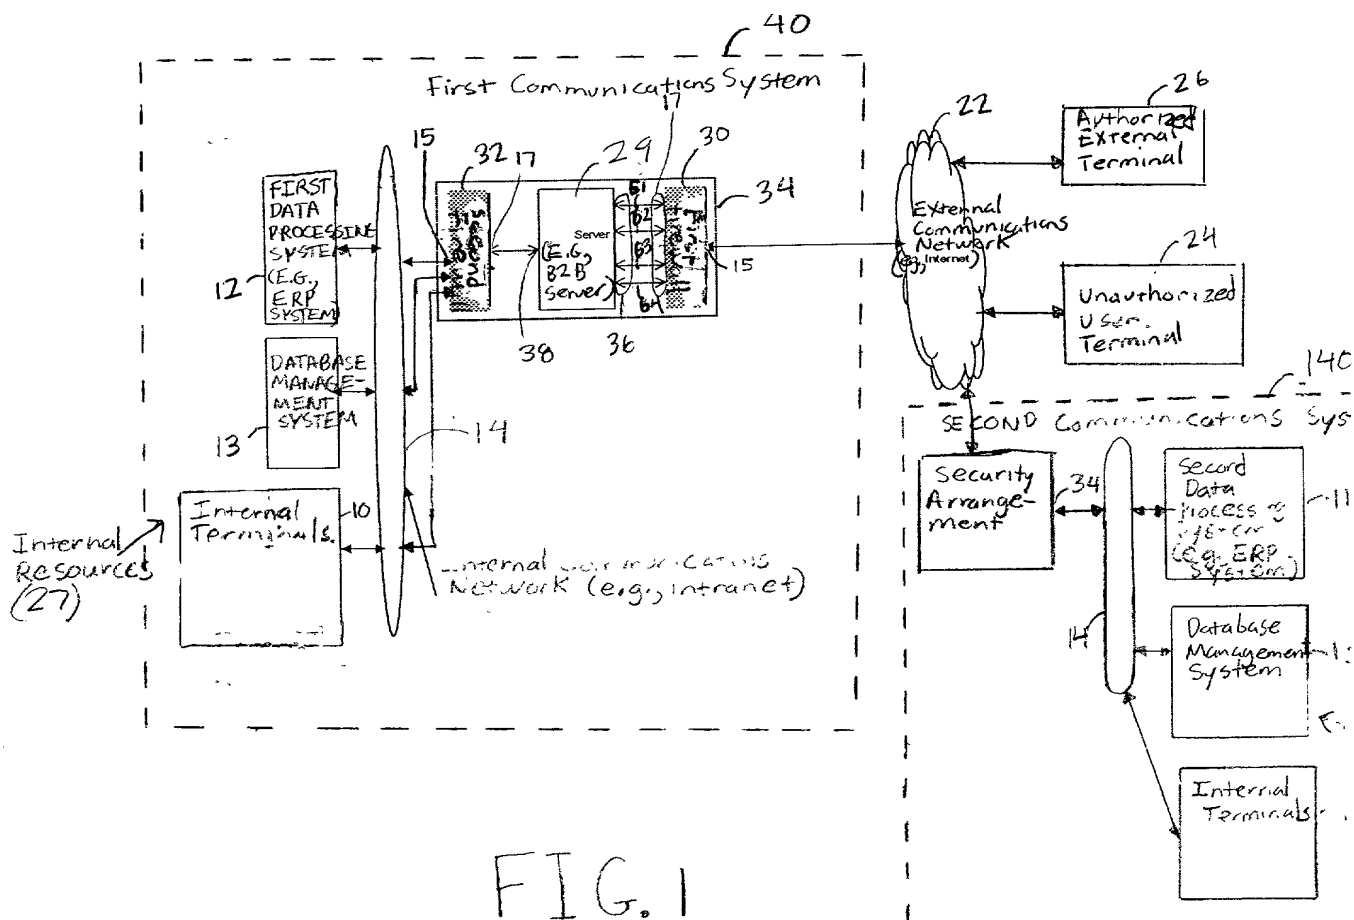 40
First Communications System
22
26
Authorized
External
Terminal
15
32
17
29
17
30
34
FIRST
DATA
PROCESSING
SYSTEM
(E.G.,
ERP
SYSTEM)
12
second
Server
(E.G.,
B2B
server)
61
62
63
64
First
15
38
36
External
Communications
Network
(e.g., Internet)
24
Unauthorized
User
Terminal
DATABASE
MANAGE-
MENT
SYSTEM
13
14
140
SECOND Communications Sys
Security
Arrange-
ment
34
Second
Data
(e.g., ERP
System)
11
Internal
Terminals.
10
Internal
Resources
(27)
Internal Communications
Network (e.g., intranet)
14
Database
Management
System
1
Internal
Terminals
FIG. 1